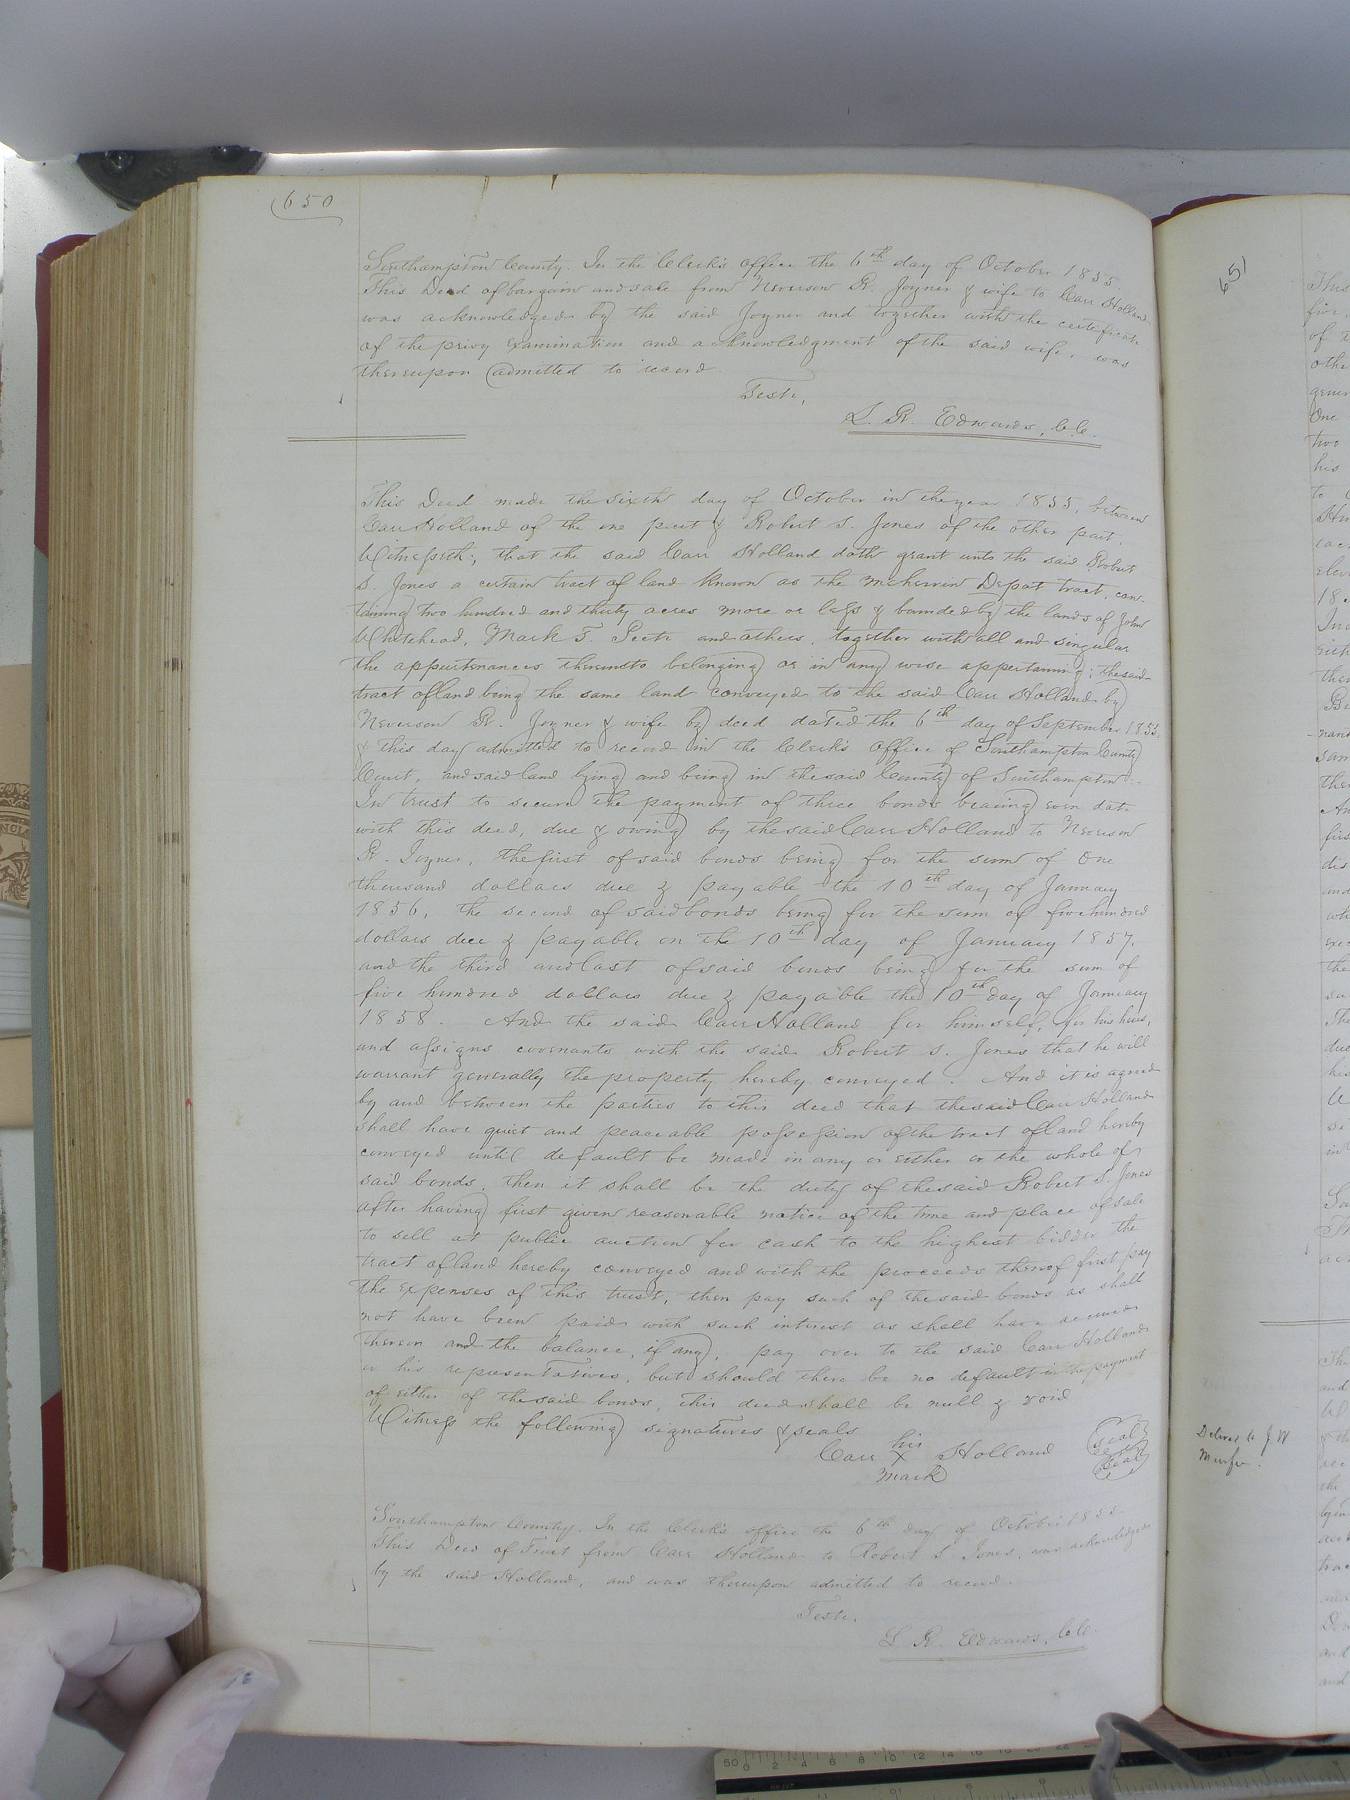 650
Southampton County. In the Clerk's office the 6th day of October 1855.
This Deed of bargain and sale from Neverson R. Joyner & wife to Carr Holland
was acknowledged by the said Joyner and together with the certificate
of the privy examination and acknowledgment of the said wife, was
thereupon admitted to record
Teste,
L. R. Edwards, C.C.
This Deed made the sixth day of October in the year 1855, between
Carr Holland of the one part & Robert S. Jones of the other part.
Witnesseth; that the said Carr Holland doth grant unto the said Robert
S. Jones a certain tract of land known as the Meherrin Depot tract, con-
taining two hundred and thirty acres more or less & bounded by the lands of John
Whitehead, Mark T. and others, together with all and singular
the appurtenances thereunto belonging or in any wise appertaining; the said
tract of land being the same land conveyed to the said Carr Holland by
Neverson R. Joyner & wife by deed dated the 6th day of September 1855
& this day admitted to record in the Clerk's Office of Southampton County
Court, and said land lying and being in the said County of Southampton
In trust to secure the payment of three bonds bearing even date
with this deed, due & owing by the said Carr Holland to Neverson
R. Joyner, the first of said bonds being for the sum of One
thousand dollars due & payable the 10th day of January
1856, the second of said bonds being for the sum of five hundred
dollars due & payable on the 10th day of January 1857,
and the third and last of said bonds being for the sum of
five hundred dollars due & payable the 10th day of January
1858. And the said Carr Holland for himself, for his heirs,
and assigns covenants with the said Robert S. Jones that he will
warrant generally the property hereby conveyed. And it is agreed
by and between the parties to this deed that the said Carr Holland
shall have quiet and peaceable possession of the tract of land hereby
conveyed until default be made in any or either or the whole of
said bonds, then it shall be the duty of the said Robert S. Jones
after having first given reasonable notice of the time and place of sale
to sell at public auction for cash to the highest bidder the
tract of land hereby conveyed and with the proceeds thereof first pay
the expenses of this trust, then pay such of the said bonds as shall
not have been paid with such interest as shall have accrued
thereon and the balance, if any, pay over to the said Carr Holland
or his representatives, but should there be no default in the payment
of either of the said bonds, this deed shall be null & void
Witness the following signatures & seals
his
Carr X Holland Seal
mark Seal
Southampton County. In the Clerk's office the 6th day of October 1855
This Deed of Trust from Carr Holland to Robert S. Jones, was acknowledged
by the said Holland, and was thereupon admitted to record.
Teste,
L R. Edwards, C.C.
651
This
five
of
othe
One
two
his
to
18
In
Delivd to J W